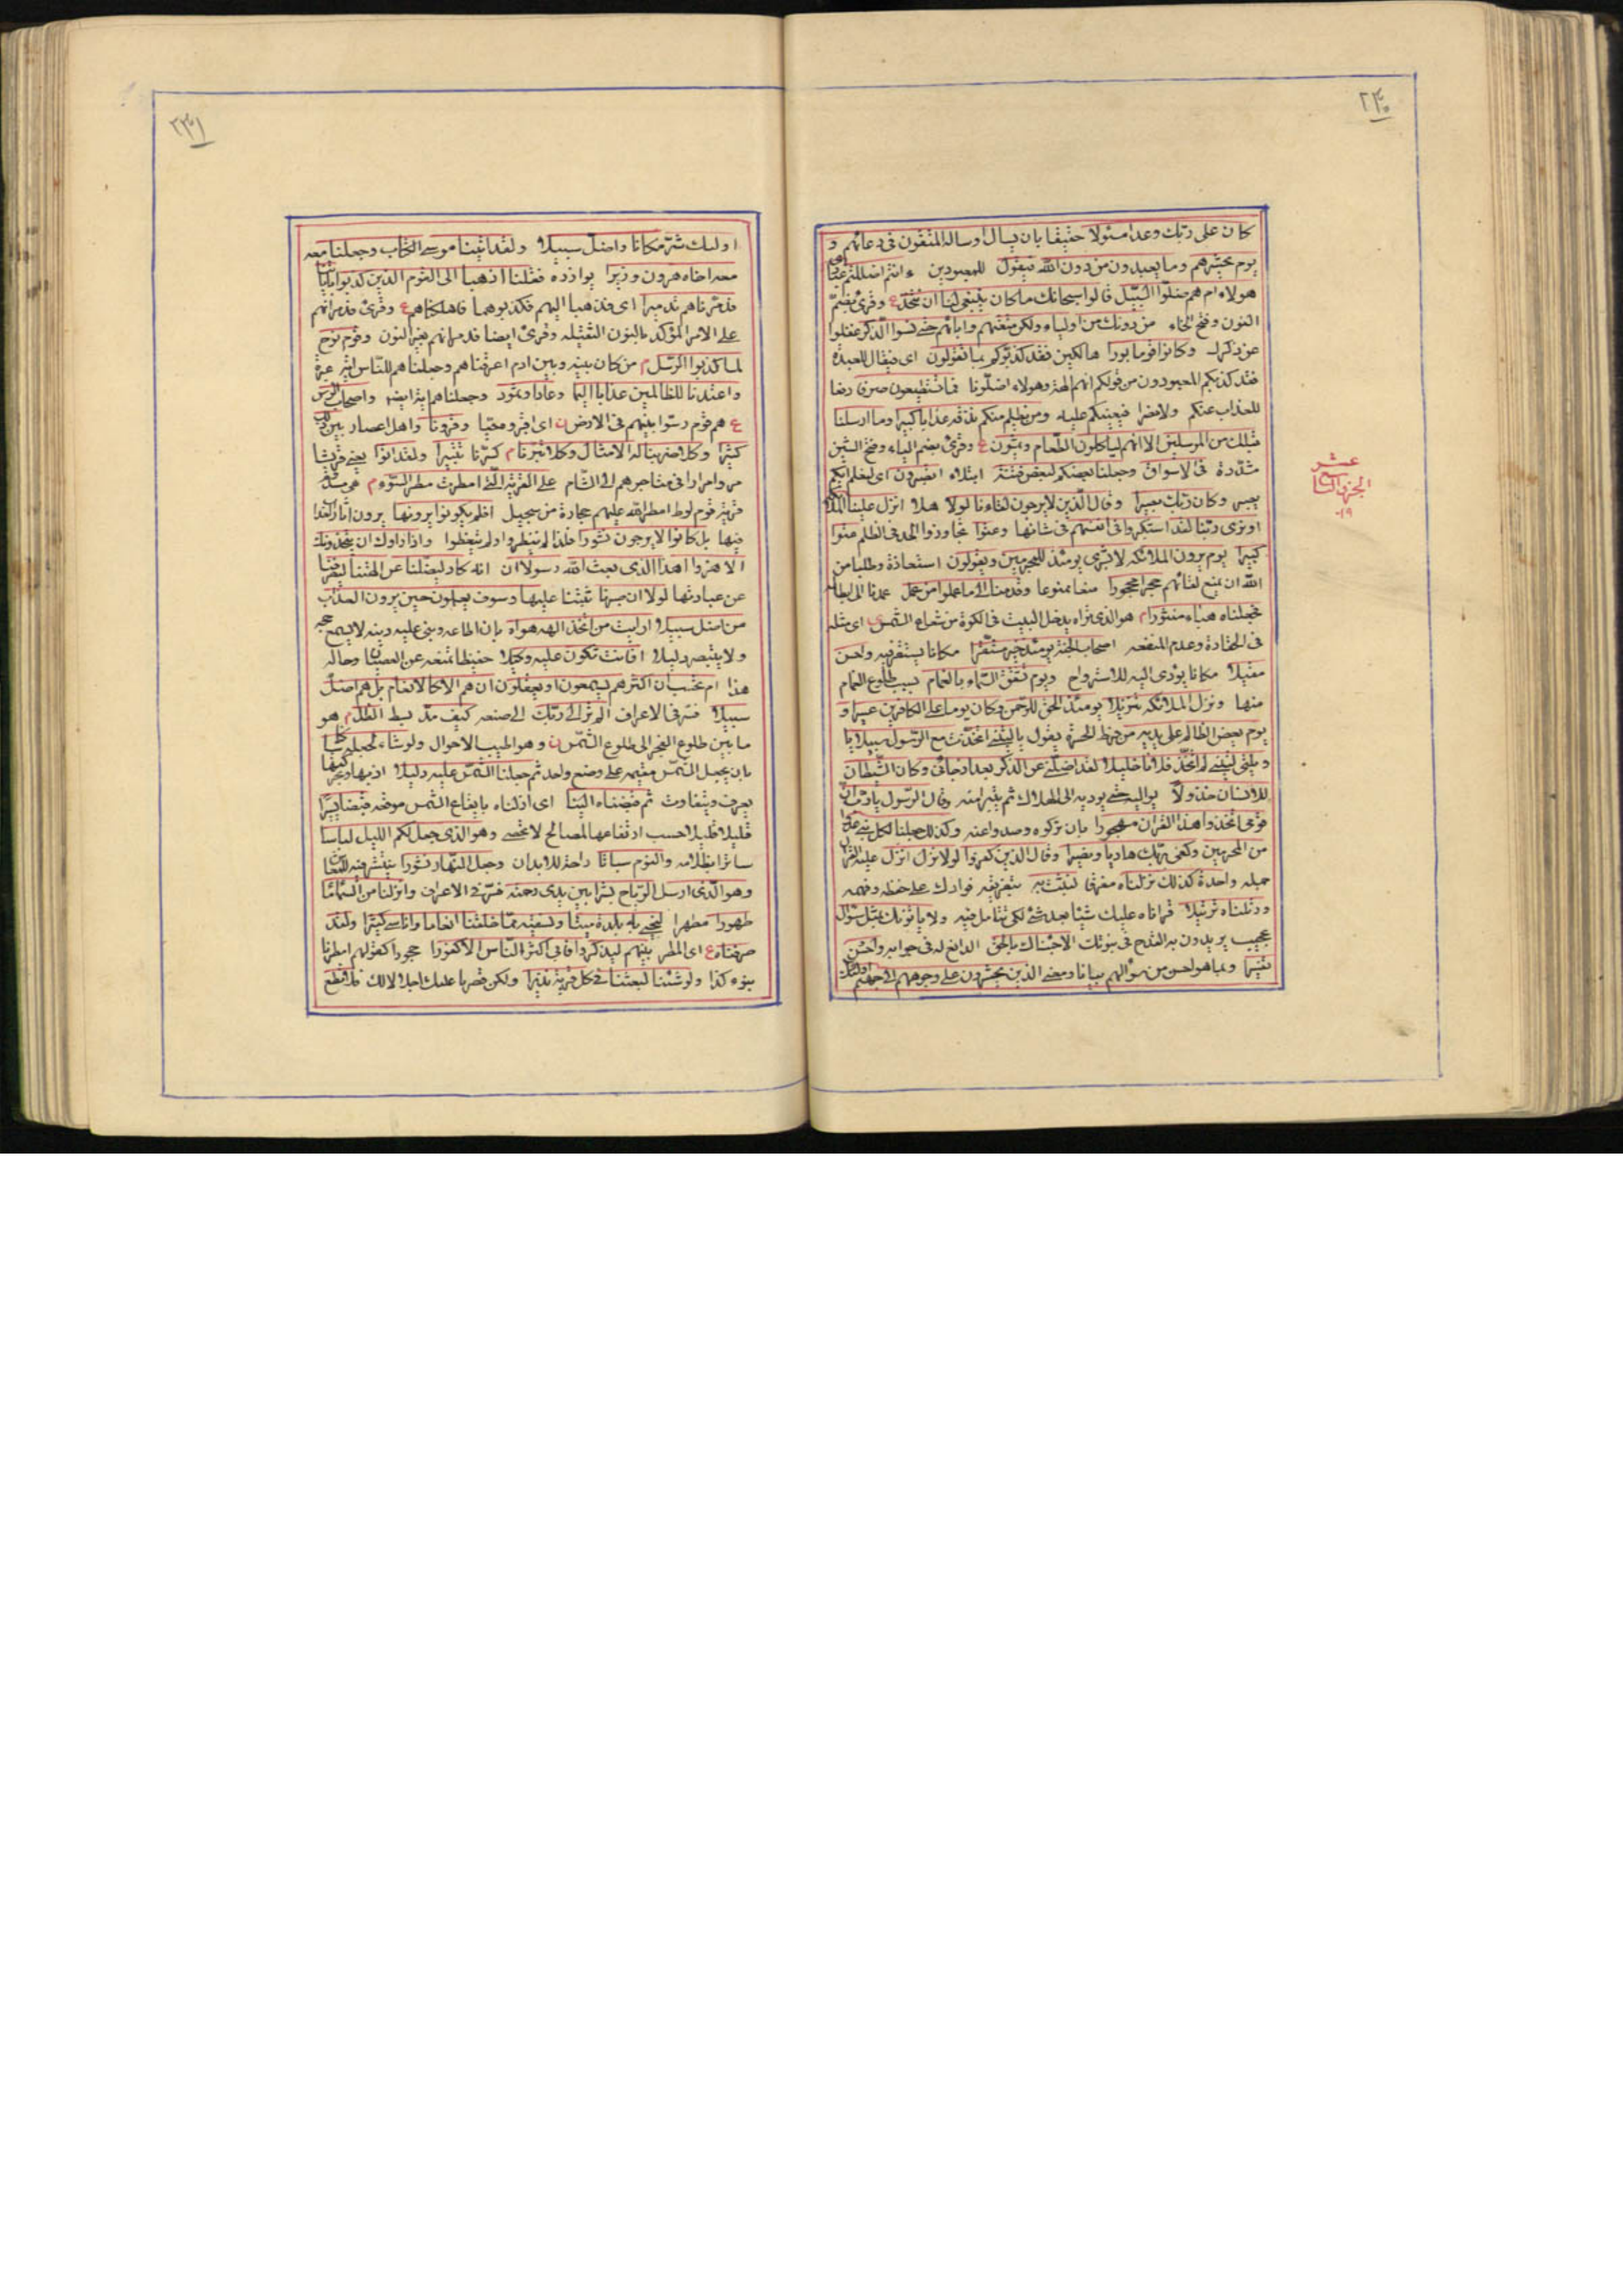 ٢٣٠
كان على ربك وعدا مسئولا حقيقا بان يسال او ساله المتقون فى دعائهم و
يوم يحشرهم وما يعبدون من دون الله فيقول للمعبودين ءانتم اضللتم عبادى
هولاء ام هم ضلوا السبيل قالوا سبحانك ما كان ينبغى لنا ان نتخذ ع وقرئ بضم
النون وفتح الخاء من دونك من اولياء ولكن متعتهم واباءهم حتى نسوا الذكر غفلوا
عن ذكرك وكانوا قوما بورا هالكين فقد كذبوكم بما تقولون اى فيقال للعبدة
فقد كذبكم المعبودون من قولكم انهم الهة وهولاء اضلونا فما تستطيعون صرفا دفعا
للعذاب عنكم ولا نصرا فيعينكم عليه ومن يظلم منكم نذقه عذابا كبيرا وما ارسلنا
قبلك من المرسلين الا انهم لياكلون الطعام ويمشون ع وقرئ بضم الياء وفتح الشين
مشددة فى الاسواق وجعلنا بعضكم لبعض فتنة ابتلاء اتصبرون اى ليعلم ايكم
يصبر وكان ربك بصيرا وقال الذين لا يرجون لقاءنا لولا هلا انزل علينا الملائكة
او نرى ربنا لقد استكبروا فى انفسهم فى شانها وعتوا تجاوزوا الحد فى الظلم عتوا
كبيرا يوم يرون الملائكه لا بشرى يومئذ للمجرمين ويقولون استعاذة وطلبا من
الله ان يمنع لقائهم حجرا محجورا منعا ممنوعا وقدمنا الى ما عملوا من عمل عمدنا الى ابطاله
فجعلناه هباء منثورا م هو الذى تراه يدخل البيت فى الكوة من شعاع الشمس اى مثله
فى الحقارة وعدم المنفعه اصحاب الجنة يومئذ خير مستقرا مكانا يستقر فيه واحسن
مقيلا مكانا يؤدى اليه للاسترواح ويوم تشقق السماء بالغمام بسبب طلوع الغمام
منها ونزل الملائكه تنزيلا يومئذ الحق للرحمن وكان يوما على الكافرين عسيرا و
يوم يعض الظالم على يديه من فرط الحسرة يقول ياليتنى اتخذت مع الرسول سبيلا يا
ويلتى ليتنى لم اتخذ فلانا خليلا لقد اضلنى عن الذكر بعد اذ جائنى وكان الشيطان
للانسان خذولا يواليه حتى يوديه الى الهلاك ثم يتبرا منه وقال الرسول يارب ان
قومى اتخذوا هذا القران مهجورا بان تركوه وصدوا عنه وكذلك جعلنا لكل نبى عدوا
من المجرمين وكفى بربك هاديا ونصيرا وقال الذين كفروا لولا نزل انزل عليه القران
جمله واحدة كذلك نزلناه مفرقا لنثبت به بتفريقه فوادك على حفظه وفهمه
ورتلناه ترتيلا قراناه عليك شيئا بعد شئ لكى تتامل فيه ولا ياتونك بمثل سؤال
عجيب يريدون به القدح فى نبوتك الا جئناك بالحق الدافع له فى جوابه واحسن
تفسيرا وبما هو احسن من سؤالهم بيانا ومعنى الذين يحشرون على وجوههم الى جهنم اولئك
الجزء التاسع
عشر
١٩
٢٣١
اولئك شر مكانا واضل سبيلا ولقد اتينا موسى الكتاب وجعلنا معه
معه اخاه هرون وزيرا يوازره فقلنا اذهبا الى القوم الذين كذبوا باياتنا
فدمرناهم تدميرا اى فذهبا اليهم فكذبوهما فاهلكناهم ع وقرئ فدمرانهم
على الامر المؤكد بالنون الثقيله وقرئ ايضا فدمرانهم بغير النون وقوم نوح
لما كذبوا الرسل م من كان بينه وبين ادم اغرقناهم وجعلناهم للناس اية عبرة
واعتدنا للظالمين عذابا اليما وعادا وثمود وجعلناهم اية ايضا واصحاب الرس
ع هم قوم رسوا نبيهم فى الارض ن اى وقرونا واهل اعصار بين ذلك
كثيرا وكلا ضربنا له الامثال وكلا تبرنا م كسرنا تتبيرا ولقد اتوا يعنى قريشا
مروا مرارا فى متاجرهم الى الشام على القرية التى امطرت مطر السوء م هى سدوم
قرية قوم لوط امطر الله عليهم حجارة من سجيل افلم يكونوا يرونها يرون اثار
فيها بل كانوا لا يرجون نشورا فلذا لم ينظروا ولم يتعظوا واذا راوك ان يتخذونك
الا هزوا اهذا الذى بعث الله رسولا ان انه كاد ليضلنا عن الهتنا
عن عبادتها لولا ان صبرنا ثبتنا عليها وسوف يعلمون حين يرون العذاب
من اضل سبيلا ارايت من اتخذ الهه هواه بان اطاعه وبنى عليه دينه لا يسمع حجة
ولا يتبصر دليلا افانت تكون عليه وكيلا حفيظا تمنعه عن العصيان وحاله
هذا ام تحسب ان اكثرهم يسمعون او يعقلون ان هم الا كالانعام بل هم اضل
سبيلا فسر فى الاعراف الم تر الى ربك الى صنعه كيف مد بسط الظل م هو
ما بين طلوع الفجر الى طلوع الشمس ن وهو اطيب الاحوال ولو شاء لجعله ساكنا
بان يجعل الشمس مقيمه على وضع واحد ثم جعلنا الشمس عليه دليلا اذ بها
يعرف ويتفاوت ثم قبضناه الينا اى ازلناه بايقاع الشمس موقعه قبضا يسيرا
قليلا قليلا حسب ارتفاعها لمصالح لا تحصى وهو الذى جعل لكم الليل لباسا
ساترا بظلامه والنوم سباتا راحة للابدان وجعل النهار نشورا ينتشر فيه للمعاش
وهو الذى ارسل الرياح بشرا بين يدى رحمته فسر فى الاعراف وانزلنا من السماء ماء
طهورا مطهرا لنحيى به بلدة ميتا ونسقيه مما خلقنا انعاما واناسى كثيرا ولقد
صرفناه ع اى المطر بينهم ليذكروا فابى اكثر الناس الا كفورا جحودا كقولهم امطرنا
بنوء كذا ولو شئنا لبعثنا فى كل قرية نذيرا ولكن قصرنا عليك اجلالا لك فلا تطع